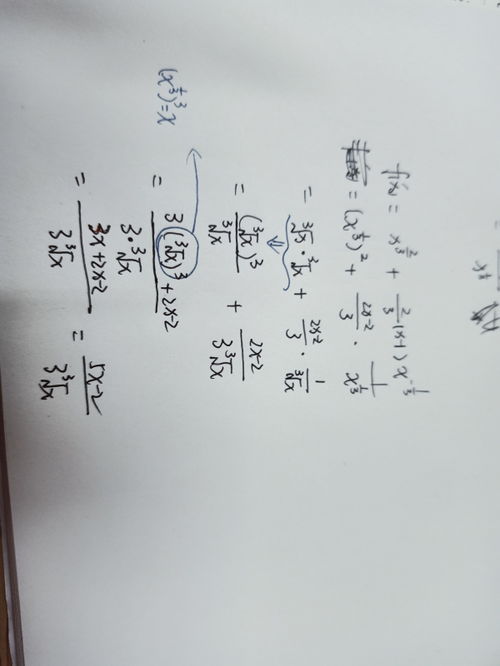 f'(x) = x^{2/3} + 2/3 (x-1) x^{-1/3}
= (x^{1/3})^2 + (2x-2)/3 · 1/x^{1/3}
= ∛x · ∛x + (2x-2)/3 · 1/∛x
= (∛x)^3/∛x + (2x-2)/(3∛x)
= (3(∛x)^3 + 2x-2)/(3·∛x)
(x^{1/3})^3 = x
= (3x+2x-2)/(3∛x) = (5x-2)/(3∛x)